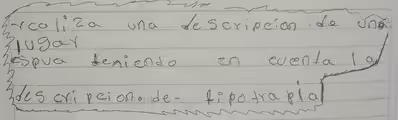 realiza una descripcion de una
lugar
espua teniendo en cuenta la
descripcion. de- tipotrapia